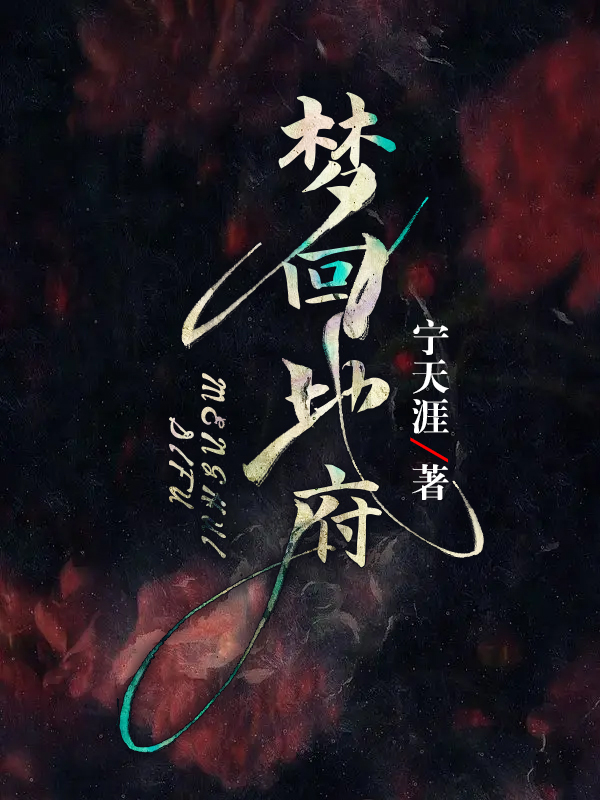 梦回地府
宁天涯/著
MENG HUI
DIFU